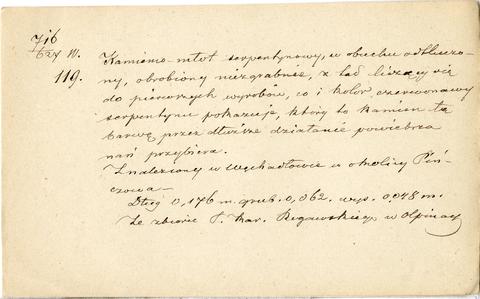 716
624 W.
119.
Kamienio-młot serpentynowy, w obuchu odtłuczo-
ny, obrobiony niezgrabnie, z tąd liczący się
do pierwotnych wyrobów, co i kolor czerwonawy
serpentynu pokazuje, który to kamień tę
barwę przez dłuższe działanie powietrza
nań przybiera.
Znaleziony w Węchadłowie w okolicy Piń-
czowa
Dług 0,176 m. grub. 0,062. wys. 0,048 m.
Ze zbioru P. Kar. Rogawskiego w Ołpinach